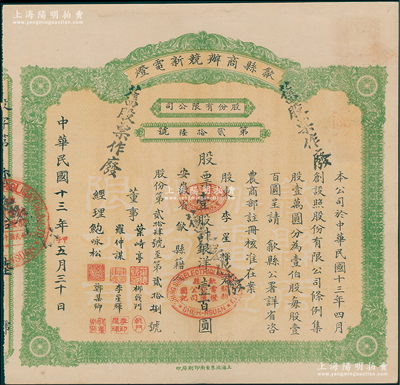 上海陽明拍賣
www.yangmingauction.com
歙縣商辦競新電燈
股份有限公司
第貳拾陸號
舊股票作廢
舊股票作廢
本公司於中華民國十三年四月
創設照股份有限公司條例集
股壹萬圓分為壹伯股每股壹
百圓呈請 歙縣公署詳省咨
農商部註冊核准在案
股東 李星
股票壹股計銀洋壹百圓
安徽省歙縣籍
股份第貳拾肆號至第貳拾捌號
董事 葉峙亭
羅仲謀 李星輝
經理 鮑咏松 鄭集師
中華民國十三年五月三十日